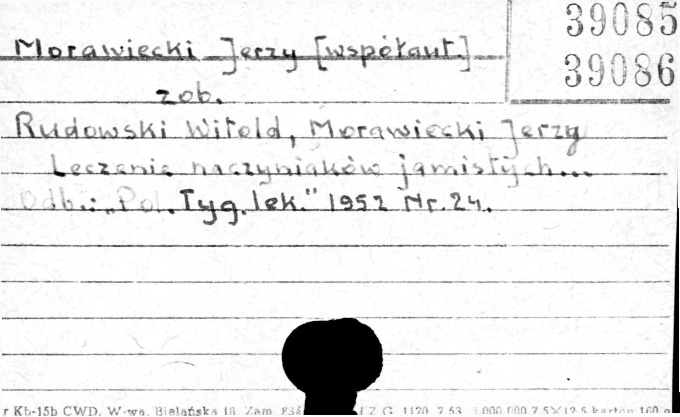 39085
Morawiecki Jerzy [współaut.]
39086
zob.
Rudowski Witold, Morawiecki Jerzy
Leczenie naczyniaków jamistych...
Odb.: „Pol. Tyg. lek." 1952 Nr. 24.
r Kb-15b CWD, W-wa, Bielańska 18. Zam. Z. G. 1120. 7.53. 1.000.000 7.5×12.5 karton 160 g